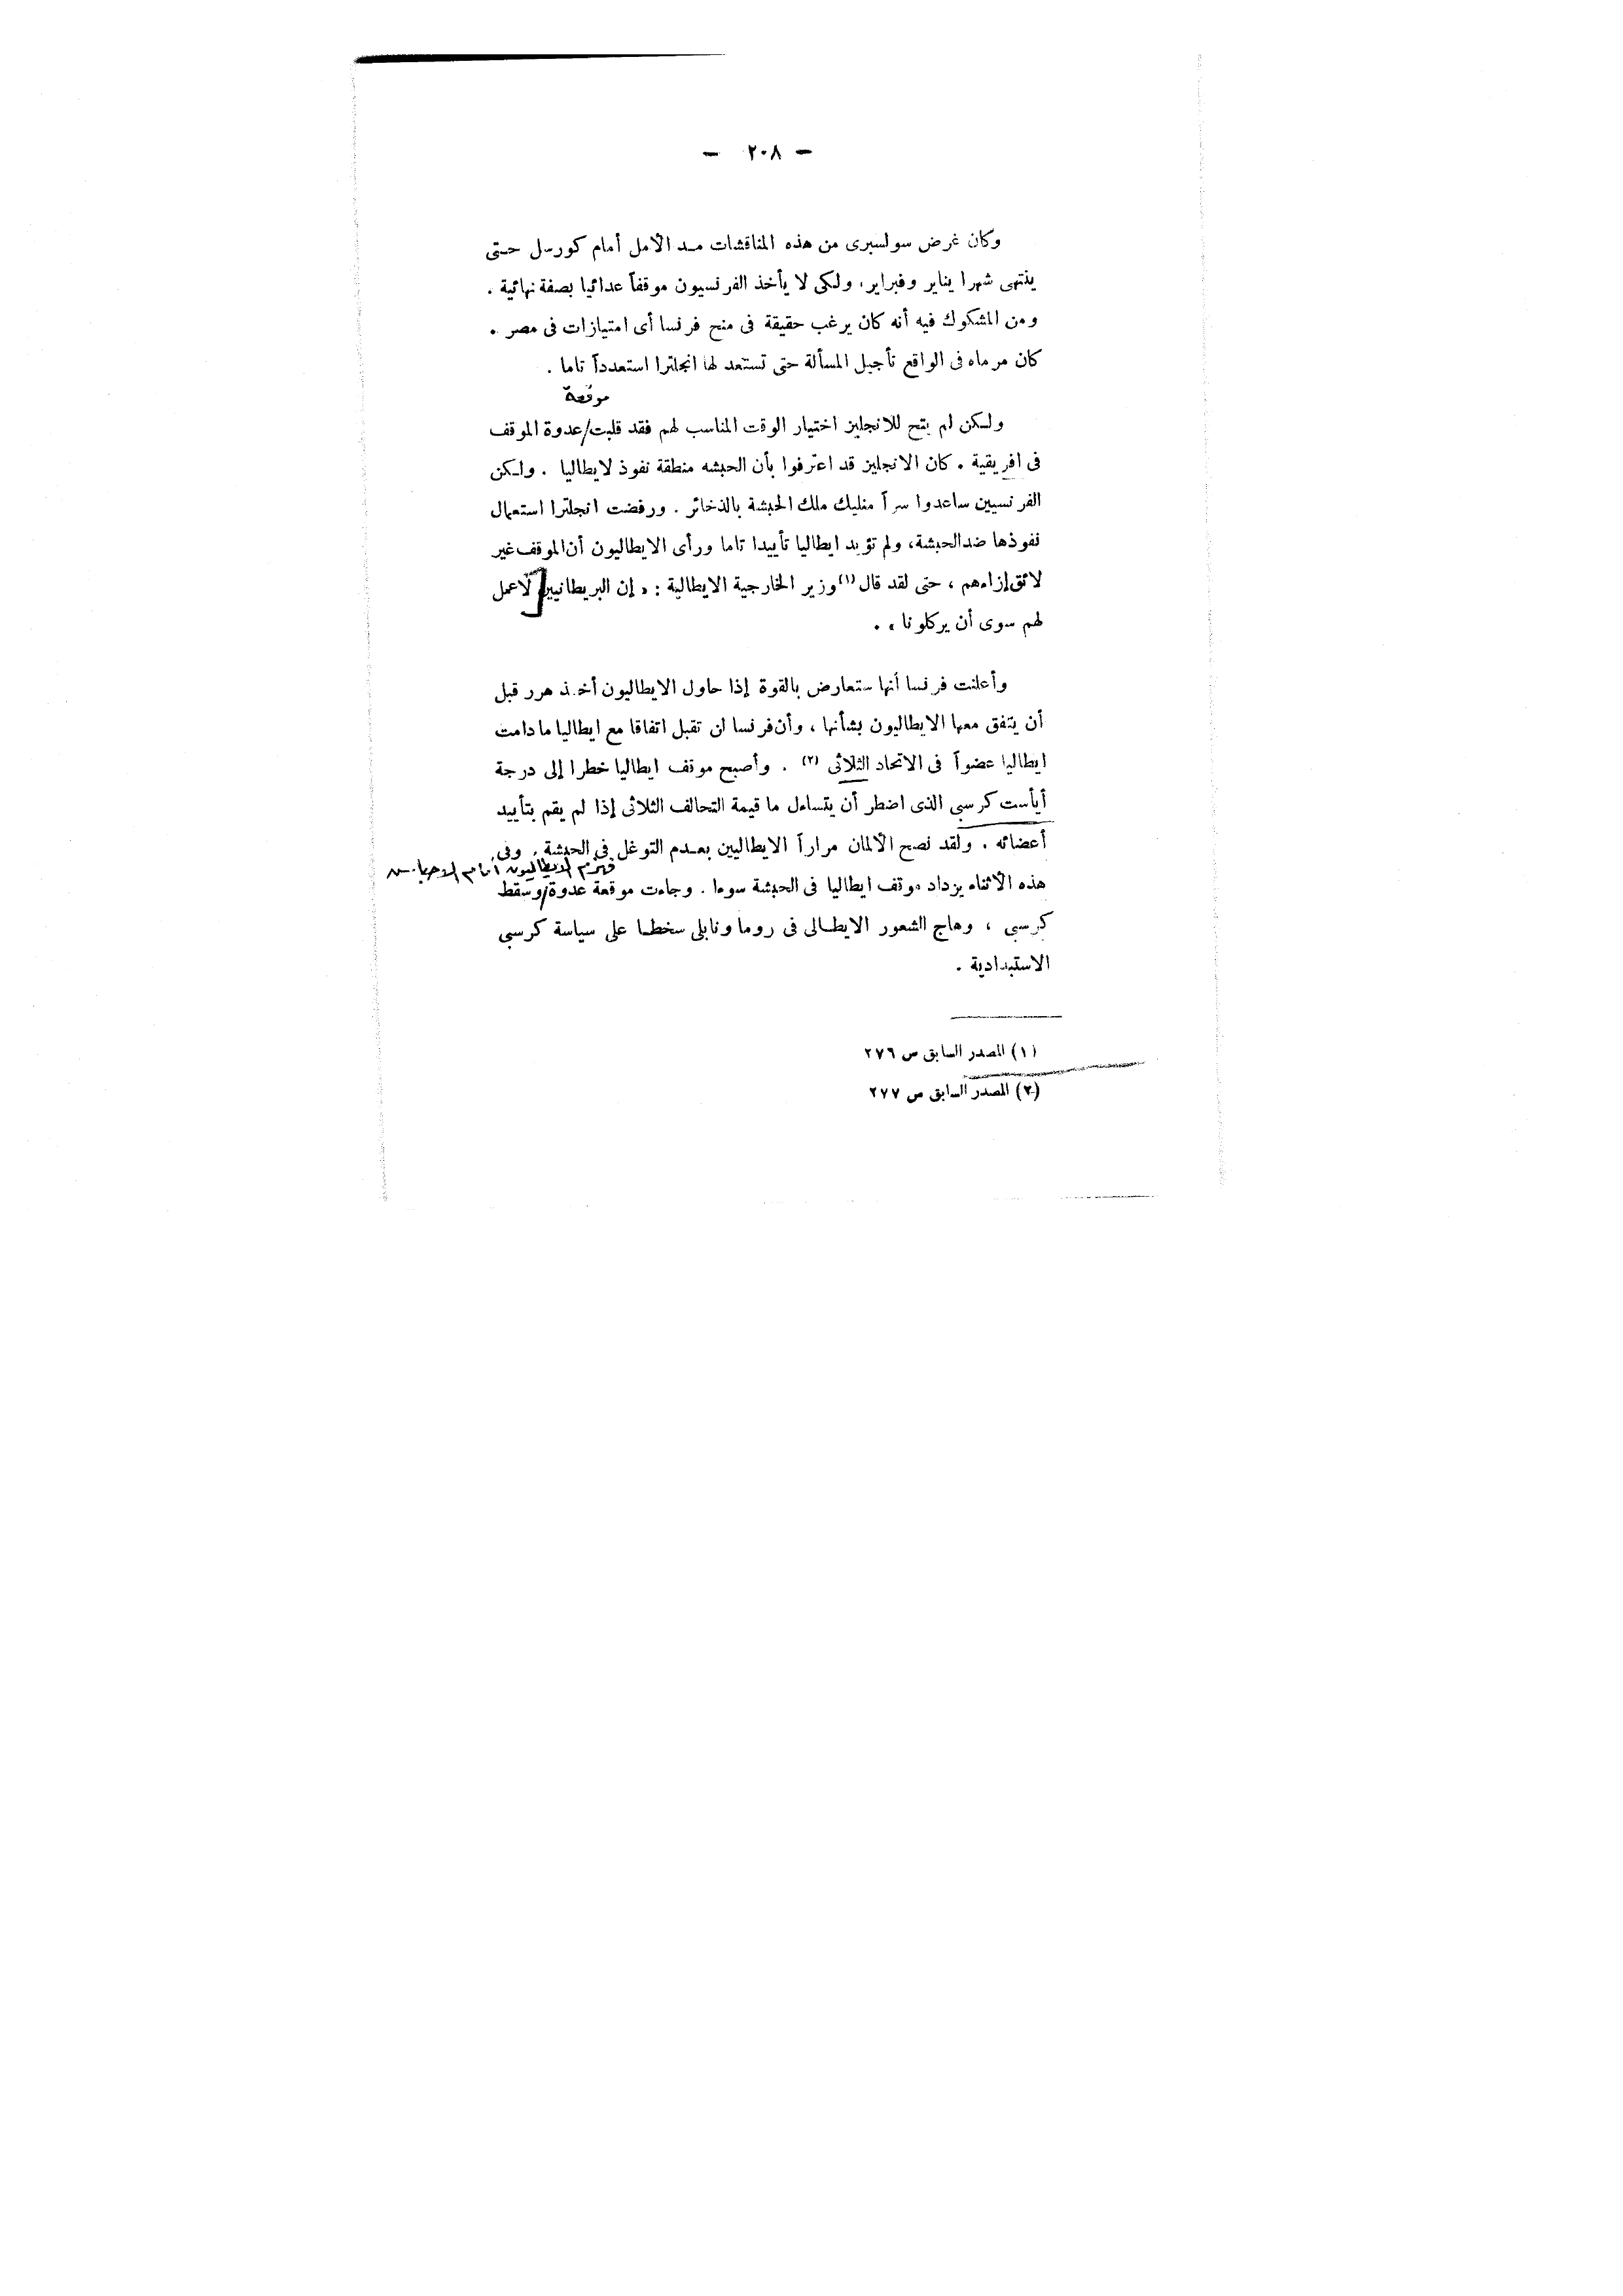 — ٢٠٨ —
وكان غرض سولسبرى من هذه المناقشات مد الأمل أمام كورسل حتى
ينتهى شهرا يناير وفبراير، ولكى لا يأخذ الفرنسيون موقفاً عدائيا بصفة نهائية .
ومن المشكوك فيه أنه كان يرغب حقيقة فى منح فرنسا أى امتيازات فى مصر .
كان مرماه فى الواقع تأجيل المسألة حتى تستعد لها انجلترا استعدداً تاما .
موقعة
ولكن لم يتح للانجليز اختيار الوقت المناسب لهم فقد قلبت/عدوة الموقف
فى افريقية . كان الانجليز قد اعترفوا بأن الحبشه منطقة نفوذ لايطاليا . ولكن
الفرنسيين ساعدوا سراً منليك ملك الحبشة بالذخائر . ورفضت انجلترا استعمال
نفوذها ضدالحبشة، ولم تؤيد ايطاليا تأييدا تاما ورأى الايطاليون أن الموقف غير
لائق إزاءهم ، حتى لقد قال (١) وزير الخارجية الايطالية : « إن البريطانيين لاعمل
لهم سوى أن يركلونا » .
وأعلنت فرنسا أنها ستعارض بالقوة إذا حاول الايطاليون أخذ هرر قبل
أن يتفق معها الايطاليون بشأنها ، وأن فرنسا لن تقبل اتفاقا مع ايطاليا مادامت
ايطاليا عضواً فى الاتحاد الثلاثى (٢) . وأصبح موقف ايطاليا خطرا إلى درجة
أيأست كرسبى الذى اضطر أن يتساءل ما قيمة التحالف الثلاثى إذا لم يقم بتأييد
أعضائه . ولقد نصح الألمان مراراً الايطاليين بعدم التوغل فى الحبشة . وفى
فهزم الايطاليون أمام الأحباش
هذه الأثناء يزداد موقف ايطاليا فى الحبشة سوءا . وجاءت موقعة عدوة/وسقط
كرسبى ، وهاج الشعور الايطالى فى روما ونابلى سخطا على سياسة كرسبى
الاستبدادية .
(١) المصدر السابق ص ٢٧٦
(٢) المصدر السابق ص ٢٧٧